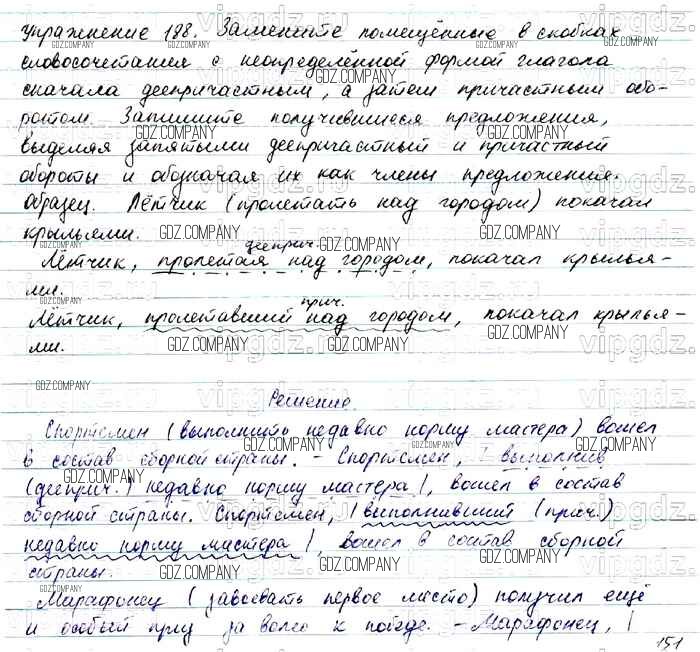 Упражнение 188. Замените помещённые в скобках
словосочетания с неопределённой формой глагола
сначала деепричастным, а затем причастным обо-
ротом. Запишите получившиеся предложения,
выделяя запятыми деепричастный и причастный
обороты и обозначая их как члены предложения.
Образец. Лётчик (пролетать над городом) покачал
крыльями.
дееприч.
Лётчик, пролетая над городом, покачал крылья-
ми.
прич.
Лётчик, пролетавший над городом, покачал крылья-
ми.
Решение.
Спортсмен (выполнить недавно норму мастера) вошел
в состав сборной страны. - Спортсмен, | выполнив
(дееприч.) недавно норму мастера|, вошел в состав
сборной страны. Спортсмен, | выполнивший (прич.)
недавно норму мастера |, вошел в состав сборной
страны.
Марафонец (завоевать первое место) получил ещё
и особый приз за волю к победе. - Марафонец, |
151
GDZ.COMPANY
vipgdz.ru